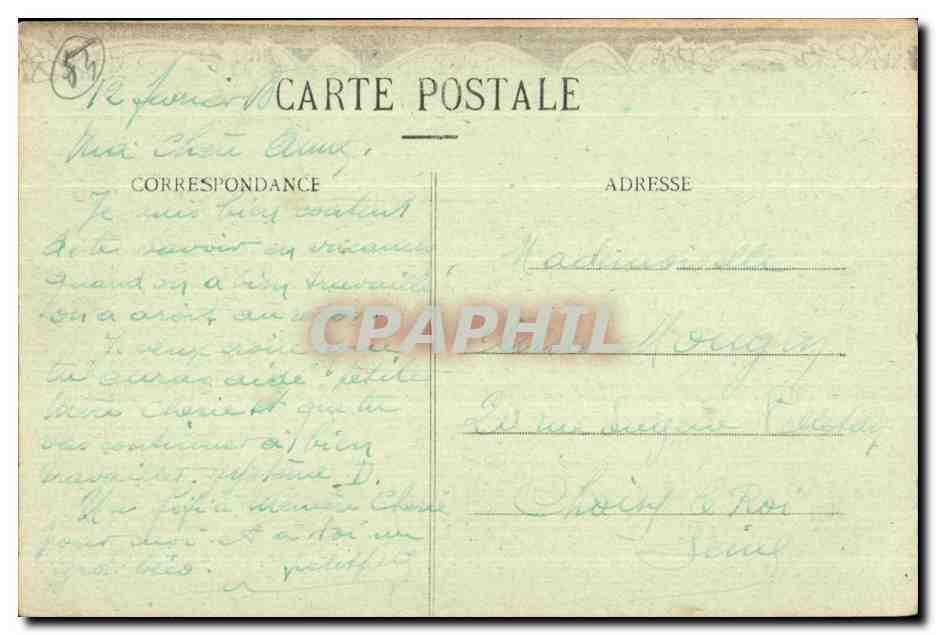 54
12 février
CARTE POSTALE
Ma Chère
CORRESPONDANCE
Je suis bien content
de te savoir en vacances
quand on a bien travaillé
on a droit au
Je veux croire
tu auras aidé petite
mère chérie et que tu
vas continuer à bien
travailler. système D.
Un à Chérie
pour moi et à toi un
gros
ADRESSE
Mademoiselle
Mougin
20 rue Eugène Pelletan
Choisy le Roi
Seine
CPAPHIL